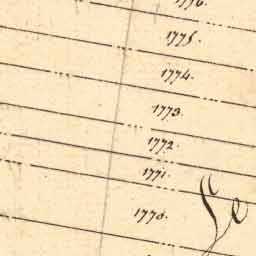 1776.
1775.
1774.
1773.
1772.
1771.
1770.
Le